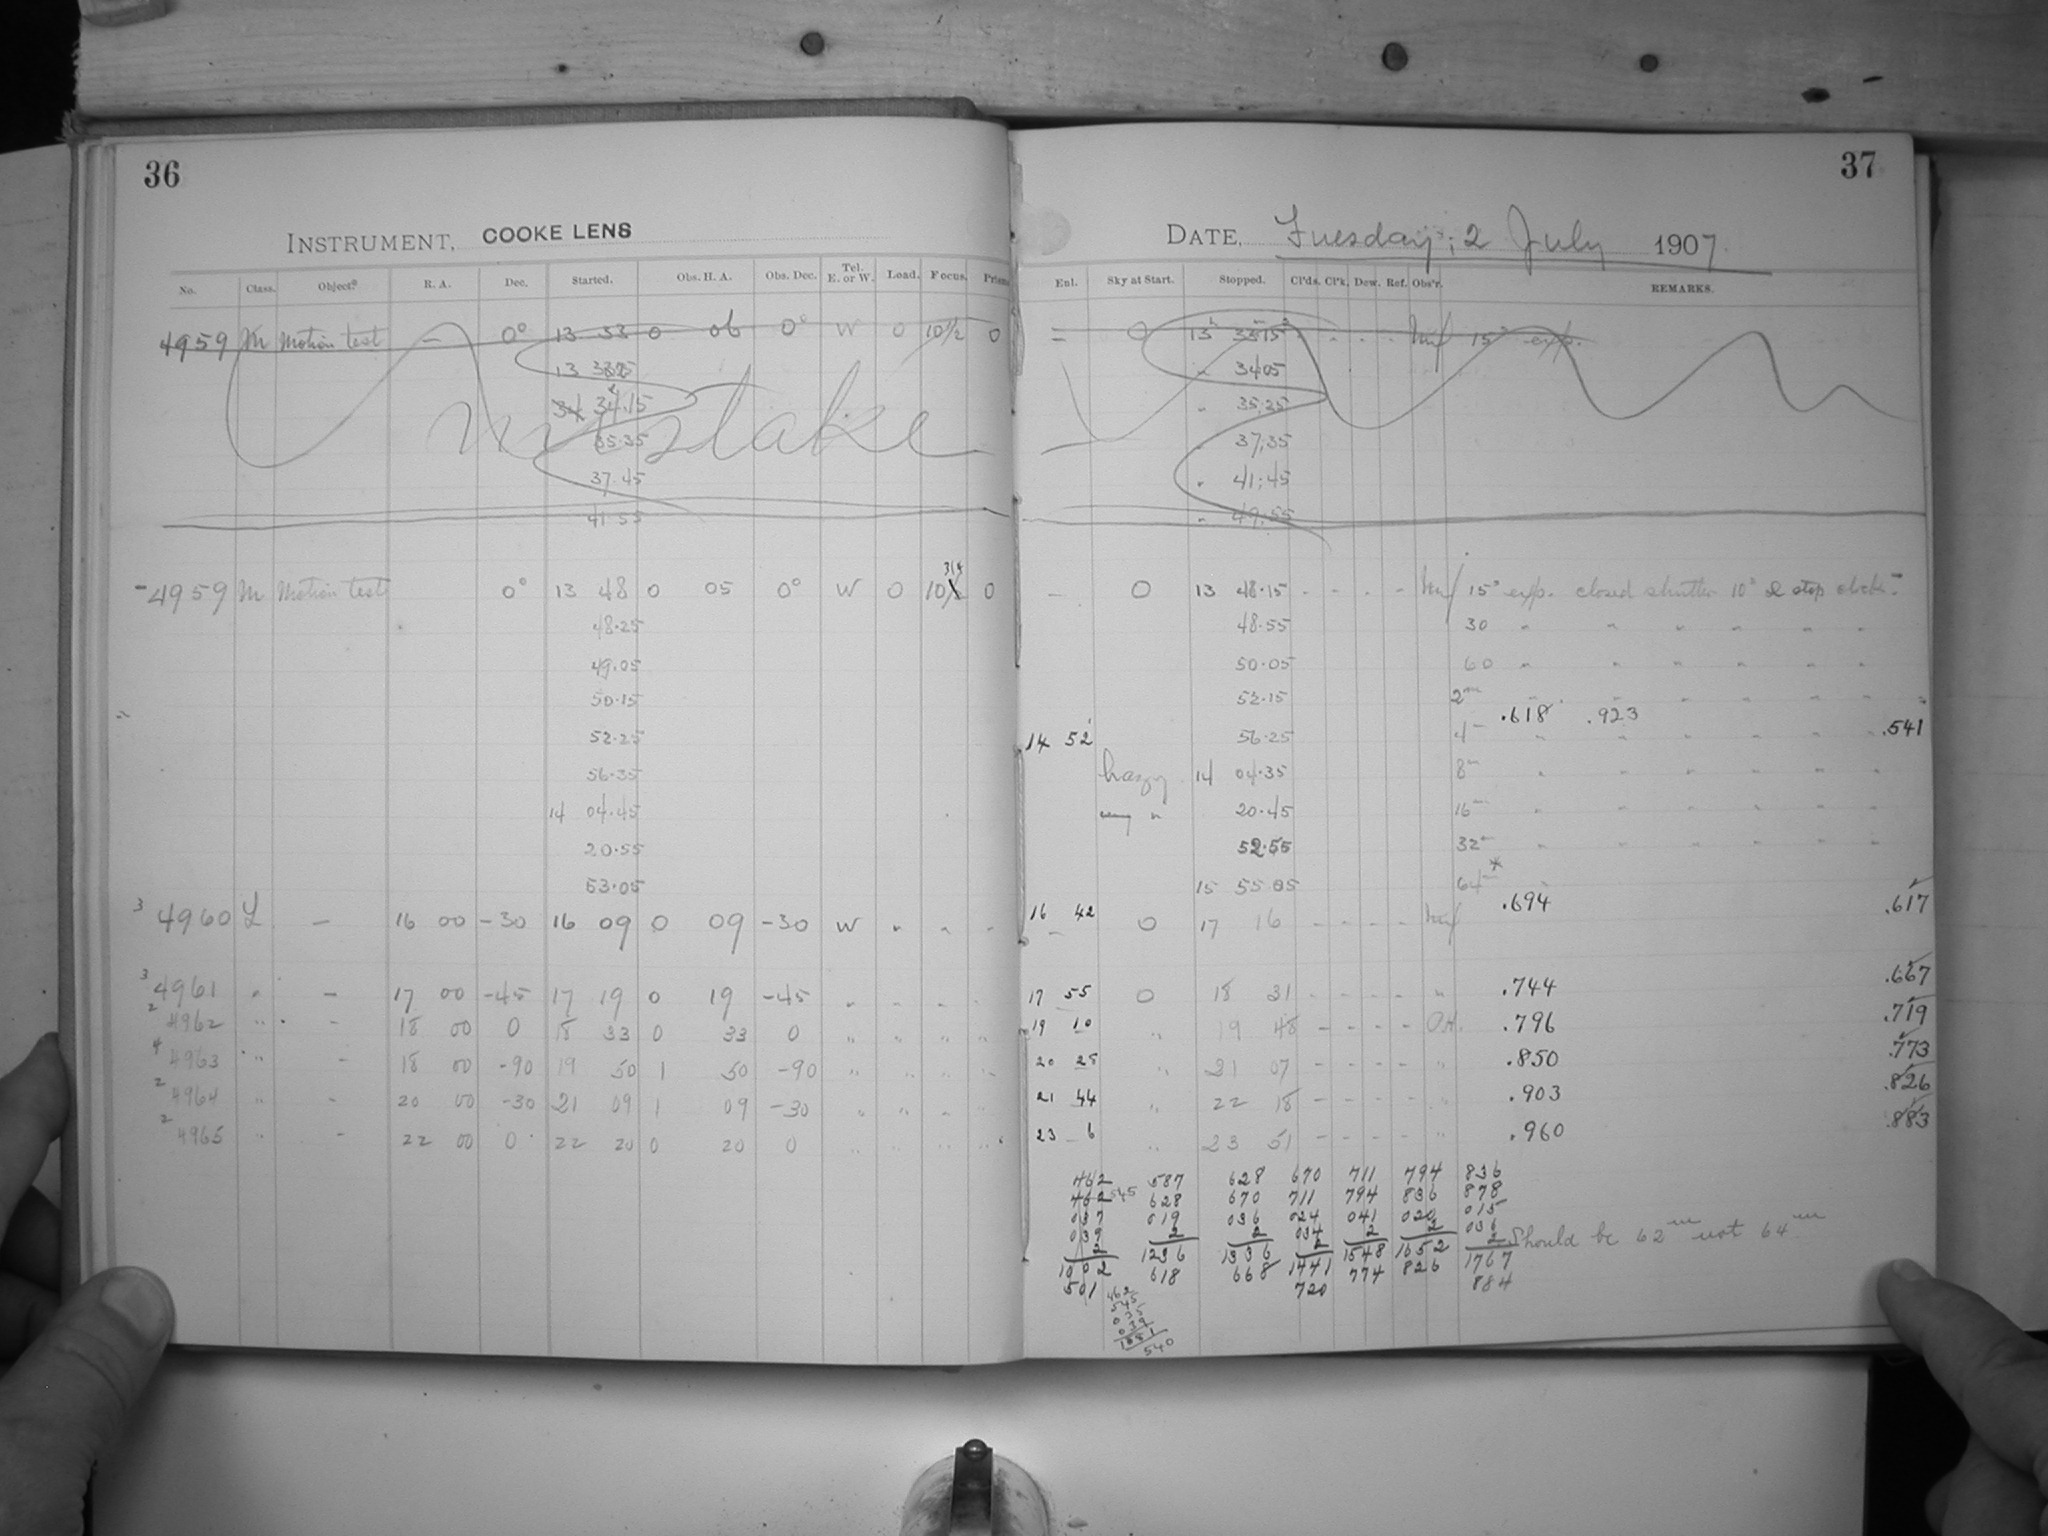 36
INSTRUMENT, COOKE LENS
No. Class. Object. R. A. Dec. Started. Obs. H. A. Obs. Dec. Tel. E. or W. Load. Focus. Prism
4959 M Motion test — 0° 13 33 0 06 0° W 0 10 1/2 0
13
34 34.15
35.35
37.45
41.55
mistake
4959 M Motion test 0° 13 48 0 05 0° W 0 10 3/4 0
48.25
49.05
50.15
52.25
56.35
14 04.45
20.55
53.05
3 4960 L — 16 00 -30 16 09 0 09 -30 W " " "
3 4961 " — 17 00 -45 17 19 0 19 -45 " " " "
2 4962 " — 18 00 0 18 33 0 33 0 " " " "
4 4963 " — 18 00 -90 19 50 1 50 -90 " " " "
2 4964 " — 20 00 -30 21 09 1 09 -30 " " " "
2 4965 " — 22 00 0 22 20 0 20 0 " " " "
37
DATE, Tuesday, 2 July 1907
Enl. Sky at Start. Stopped. Cl'ds. Cl'k. Dew. Ref. Obs'r. REMARKS.
— 0 13h 3315 15s exp.
" 3405
" 35,25
" 37,35
" 41,45
" 49,55
— 0 13 48.15 - - - - 15s exp. closed shutter 10s & stop clock
48.55 30 " " " " " "
50.05 60 " " " " " "
52.15 2m " " " " " "
.618 .923
14 52 56.25 4m " " " " " " .541
hazy 14 04.35 8m " " " " " "
" 20.45 16m " " " " " "
52.55 32m " " " " " "
15 55 05 64m*
16 42 0 17 16 - - - - .694 .617
17 55 0 18 31 - - - - " .744 .667
19 10 " 19 48 - - - - .796 .719
20 25 " 21 07 - - - - " .850 .773
21 44 " 22 18 - - - - " .903 .826
23 6 " 23 51 - - - - " .960 .883
462 587 628 670 711 794 836
462 545 628 670 711 794 836 878
037 019 036 024 041 020 015
039 2 2 034 2 2 036
2 1236 1336 2 1548 1652 2 Should be 62m not 64m
1002 618 668 1441 774 826 1767
501 720 884
540